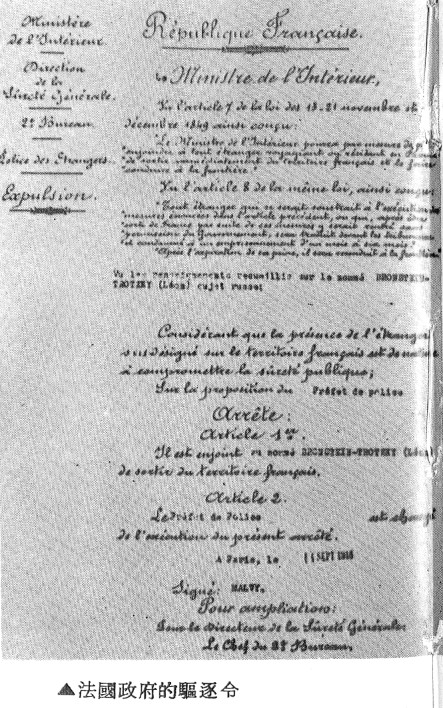 Ministère
de l'Intérieur.
Direction
de la
Sûreté Générale.
2e Bureau.
Police des Étrangers.
Expulsion.
République Française.
Le Ministre de l'Intérieur,
Vu l'article 7 de la loi des 13-21 novembre et
décembre 1849 ainsi conçu:
"Le Ministre de l'Intérieur pourra par mesure de
enjoindre à tout étranger voyageant ou résidant en
"de sortir immédiatement du territoire français et le faire
"conduire à la frontière."
Vu l'article 8 de la même loi, ainsi conçu:
"Tout étranger qui se serait soustrait à l'exécution
"mesures énoncées dans l'article précédent, ou qui, après être
"sorti de France par suite de ces mesures y serait rentré sans
"permission du Gouvernement, sera traduit devant les tribunaux
"et condamné à un emprisonnement d'un mois à six mois."
"Après l'expiration de sa peine, il sera reconduit à la frontière."
Vu les renseignements recueillis sur le nommé BRONSTEIN-
TROTSKY (Léon) sujet russe;
Considérant que la présence de l'étranger
susdésigné sur le territoire français est de nature
à compromettre la sûreté publique;
Sur la proposition du Préfet de police
Arrête:
Article 1er.
Il est enjoint au nommé BRONSTEIN-TROTSKY (Léon)
de sortir du territoire français.
Article 2.
Le Préfet de Police est chargé
de l'exécution du présent arrêté.
A Paris, le SEPT
Signé: MALVY.
Pour ampliation:
Pour le Directeur de la Sûreté Générale
Le Chef du 2e Bureau,
▲法國政府的驅逐令